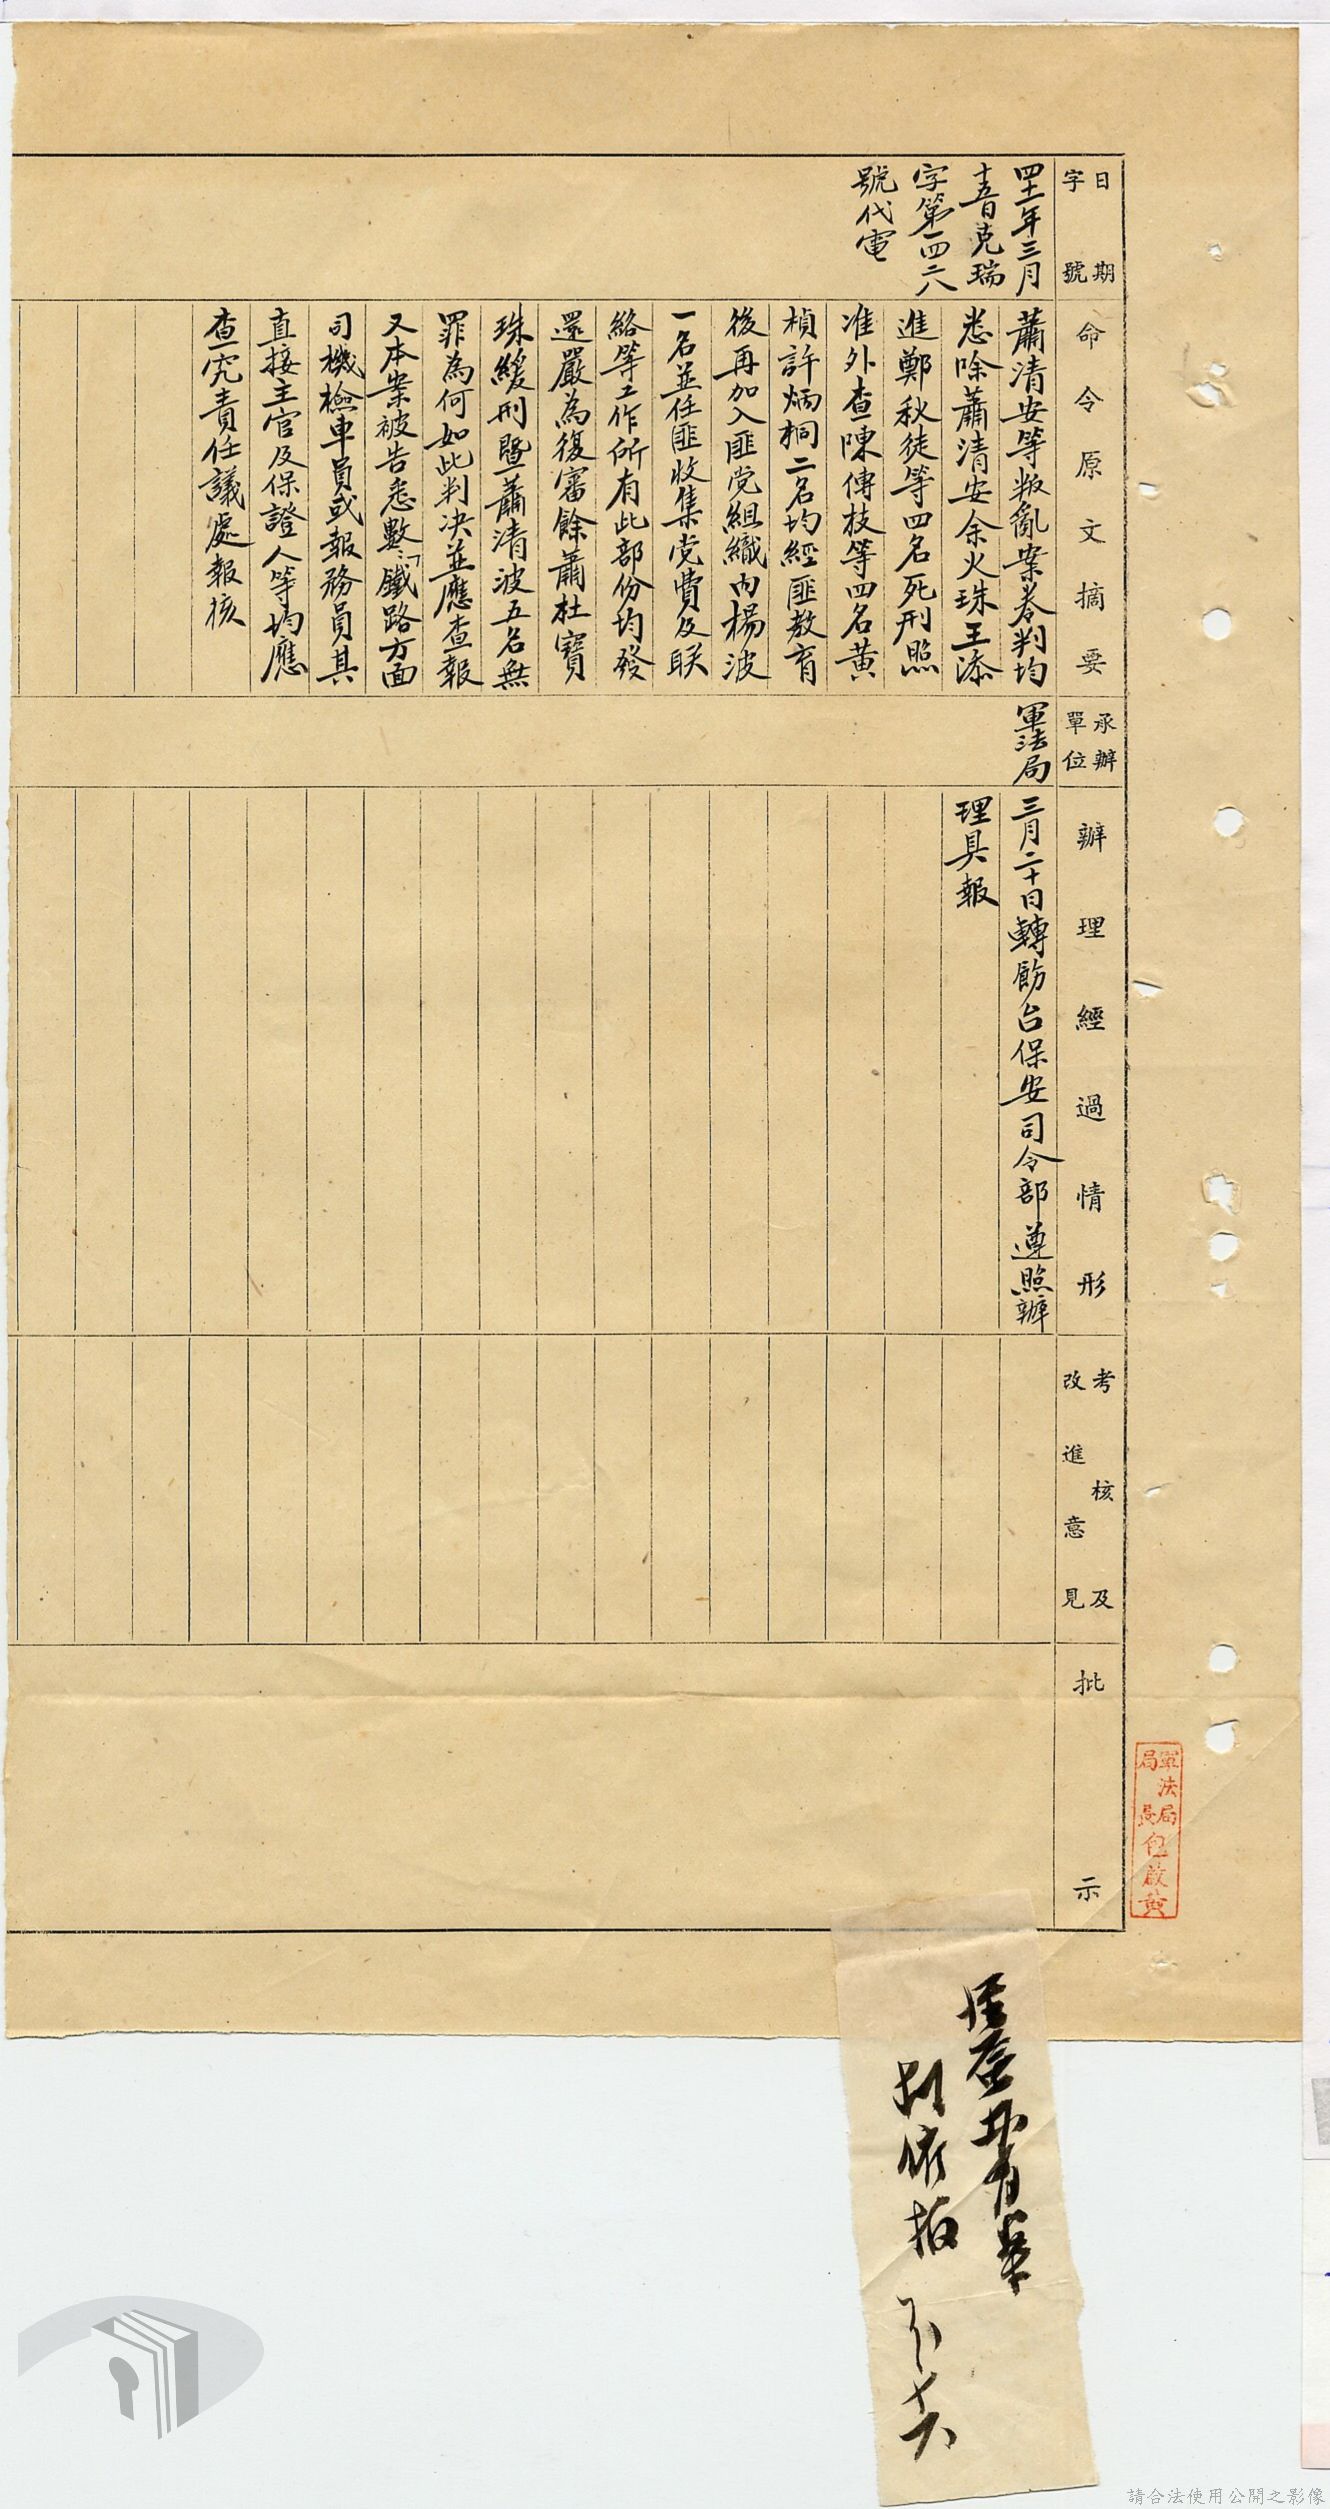 日期
字號
四十一年三月
十五日克瑞
字第一四六
號代電
命令原文摘要
蕭清安等叛亂案卷判均
悉除蕭清安余火珠王添
進鄭秋徒等四名死刑照
准外查陳傳枝等四名黃
楨許炳桐二名均經匪教育
後再加入匪党組織內楊波
一名並任匪收集党費及联
絡等工作所有此部份均發
還嚴為復審餘蕭杜寶
珠緩刑暨蕭清波五名無
罪為何如此判决並應查報
又本案被告悉數「鐵路方面
司機檢車員或報務員其
直接主官及保證人等均應
查究責任議處報核
承辦
單位
軍法局
辦理經過情形
三月二十日轉飭台保安司令部遵照辦
理具報
考核及
改進意見
批示
軍法局
局長包啟黃
請合法使用公開之影像